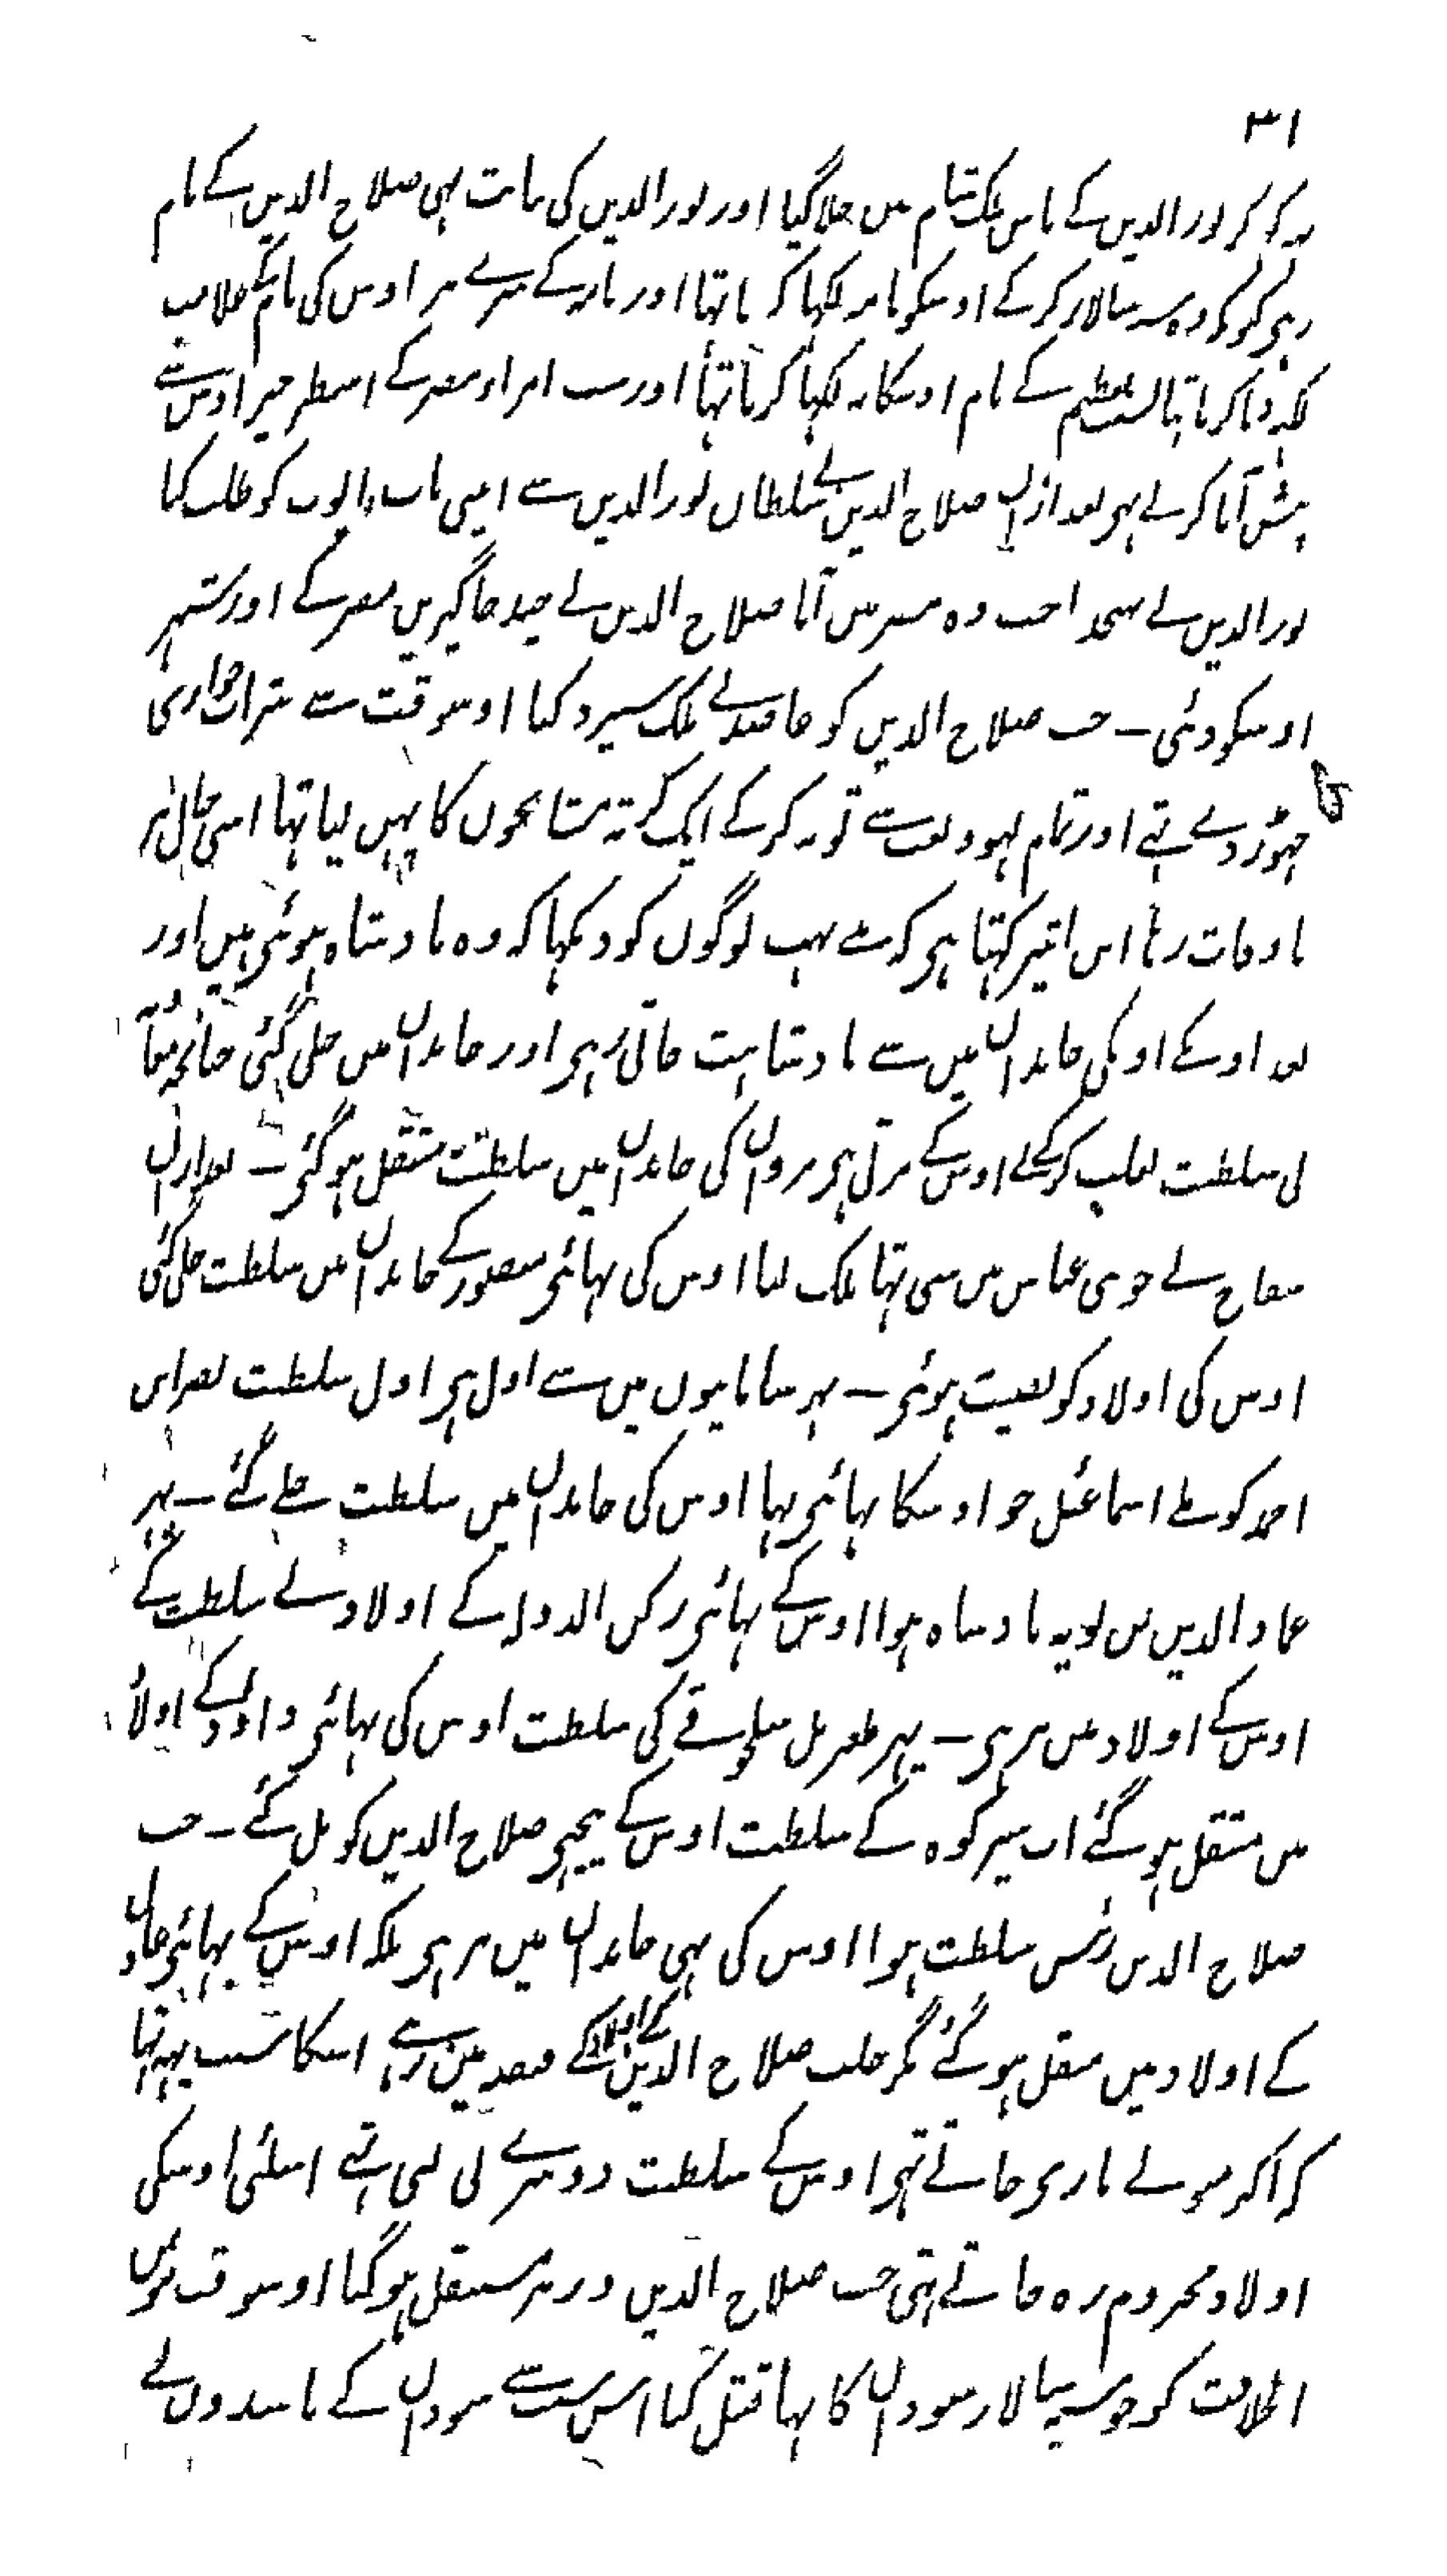 ۳۱
یہ کر کر نور الدین کے پاس ملک شام میں چلا گیا اور نور الدین کی نیابت بہی صلاح الدین کے نام
رہی کیونکہ وہ سپہ سالار کر کے اوسکو نامہ لکہا کرتا تہا اور نامہ کے سرے پر اوس کی نام کے علامت
لکہہ دیا کرتا تہا لسبب تعظیم کے نام اوسکا نہ لکہا کرتا تہا اور سب امراء مصر کے اسطرحپر اوس سے
پیش آیا کرتے تہے بعد ازاں صلاح الدین نے سلطان نور الدین سے اپنی باپ ایوب کو طلب کیا
نور الدین نے بہیجدیا جب وہ مصر میں آیا صلاح الدین نے چند جاگیریں مصر کے اور شہر
اوسکو دئی ـ جب صلاح الدین کو عاضد نے ملک سپرد کیا اوسوقت سے شراب خواری
چہوڑ دے تہے اور تمام لہو و لعب سے توبہ کر کے ایک کرتہ مشایخوں کا پہن لیا تہا اسی حال پر
تا وفات رہا ابن اثیر کہتا ہی کہ مینے بہت لوگوں کو دیکہا کہ وہ بادشاہ ہوئی ہیں اور
بعد اوسکے اونکی خاندان میں سے بادشاہت جاتی رہی اور خاندان میں چلی گئی چنانچہ معاویہ
نی سلطنت تغلب کر کے لے اوس کے مرتی ہی مروان کی خاندان میں سلطنت منتقل ہو گئی ـ بعد ازاں
سفاح نے جو بنی عباس میں سی تہا ملک لیا اوس کی بہائی منصور کے خاندان میں سلطنت چلی گئی
اوس کی اولاد کو نصیب ہوئی ـ پہر سامانیوں میں سے اول ہی اول سلطنت نصر ابن
احمد کو ملے اسماعئیل جو اوسکا بہائی تہا اوس کی خاندان میں سلطنت چلے گئے ـ پہر
عماد الدین بن بویہ بادشاہ ہوا اوس کے بہائی رکن الدولہ کے اولاد نے سلطنت کے
اوس کے اولاد میں نرہی ـ پہر طغرل سلجوقے کی سلطنت اوس کی بہائی داود کے اولاد
میں منتقل ہو گئے اب شیرکوہ کے سلطنت اوس کے پیچہی صلاح الدین کو مل گئے ـ جب
صلاح الدین رئیس سلطنت ہوا اوس کی بہی خاندان میں نرہی بلکہ اوس کے بہائی عادل
کے اولاد میں منتقل ہو گئے مگر حلب صلاح الدین کے اولاد کے قبضہ میں رہے اسکا سبب یہہ تہا
کہ اکثر جو لے ماری جاتے تہی اوس کے سلطنت دوسرے لی لیتی تہے اسلئی اوسکی
اولاد محروم رہ جاتے تہی جب صلاح الدین وزیر مستقل ہو گیا اوسوقت موتمن
الخلافت کو جو سپہ سالار سودان کا تہا قتل کیا اس سبب سے سودان کے باشندوں نے